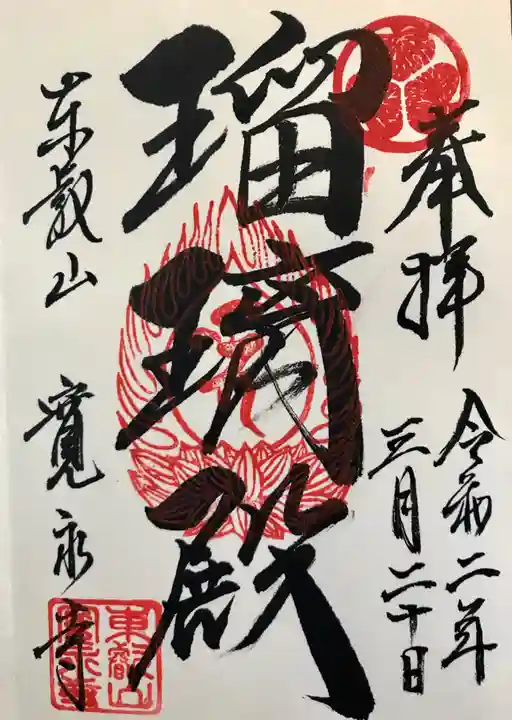 奉拝
令和二年
三月二十日
瑠璃殿
東叡山 寛永寺
東叡山
寛永寺